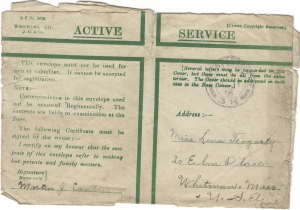 ACTIVE
SERVICE
[Crown Copyright Reserved.]
This envelope must not be used for
coin or valuables. It cannot be accepted
for registration.
NOTE:—
Correspondence in this envelope need
not be censored Regimentally. The
contents are liable to examination at the
Base.
The following Certificate must be
signed by the writer:—
I certify on my honour that the con-
tents of this envelope refer to nothing
but private and family matters.
Signature
[Several letters may be forwarded in this
Cover, but these must all be from the same
writer. The Cover should be addressed in such
case to the Base Censor.]
Address:—
Miss
20 Elm Place
Whitman Mass
U.S.A
Martin J.